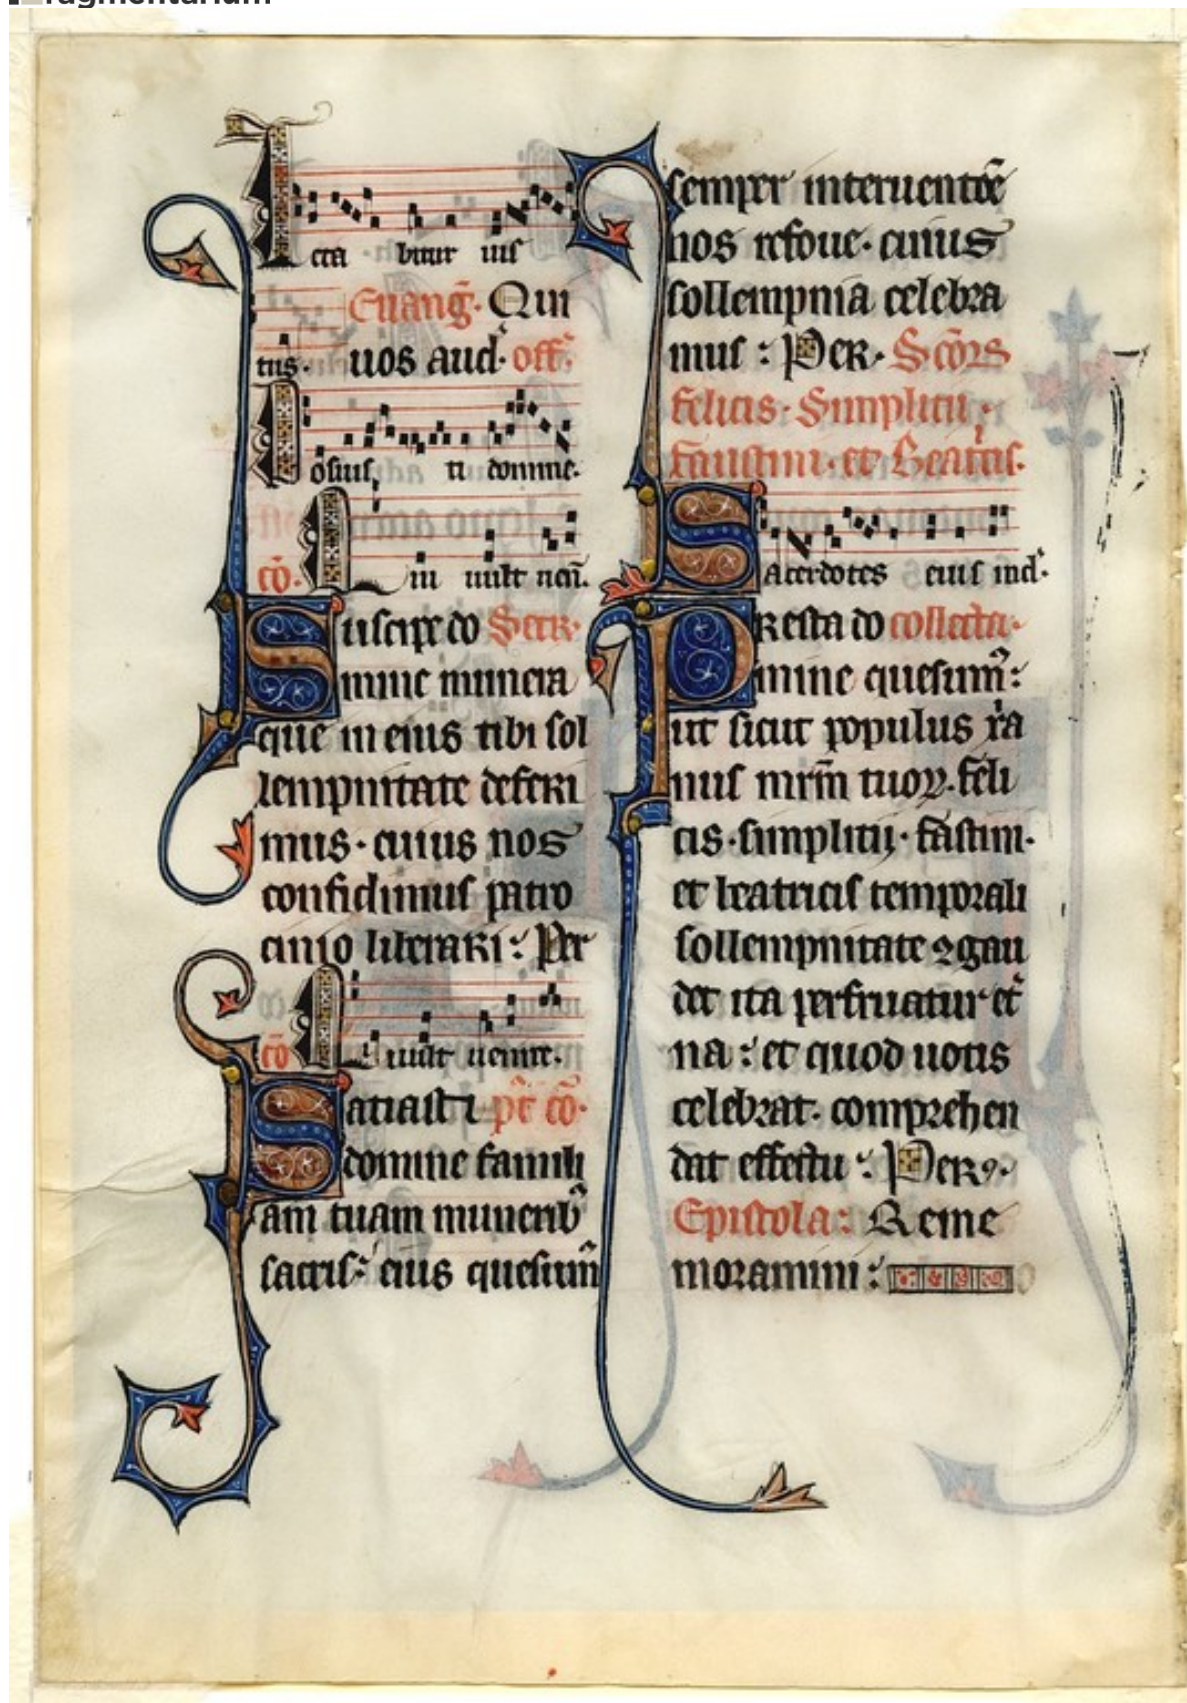 Leta bitur ius
Euang̃. Qui
tus. uos aud. off.
Posuis ti domine.
cō. Qui uult uen̄.
Suscipe do Secr.
mine munera
que in eius tibi sol
lempnitate deferi
mus. cuius nos
confidimus patro
cinio liberari: Per
cō Qui uult uenire.
Satiasti pt̄ cō.
domine famili
am tuam munerib9
sacris: eius quesum̄
semper interuentōe
nos refoue. cuius
sollempnia celebra
mus: Per. Scōrꝝ
felicis. Simplicii.
Faustini. et Beat'cis.
Sacerdotes eius ind.
Presta do collecta.
mine quesum9:
ut sicut populus xp̄ia
nus mr̄m tuoꝝ. feli
cis. simplicij. fastini.
et beatricis temporali
sollempnitate ꝯgau
det ita perfruatur et̄
na: et quod uotis
celebrat. comprehen
dat effectu: Per9.
Epistola: Reme
moramini: